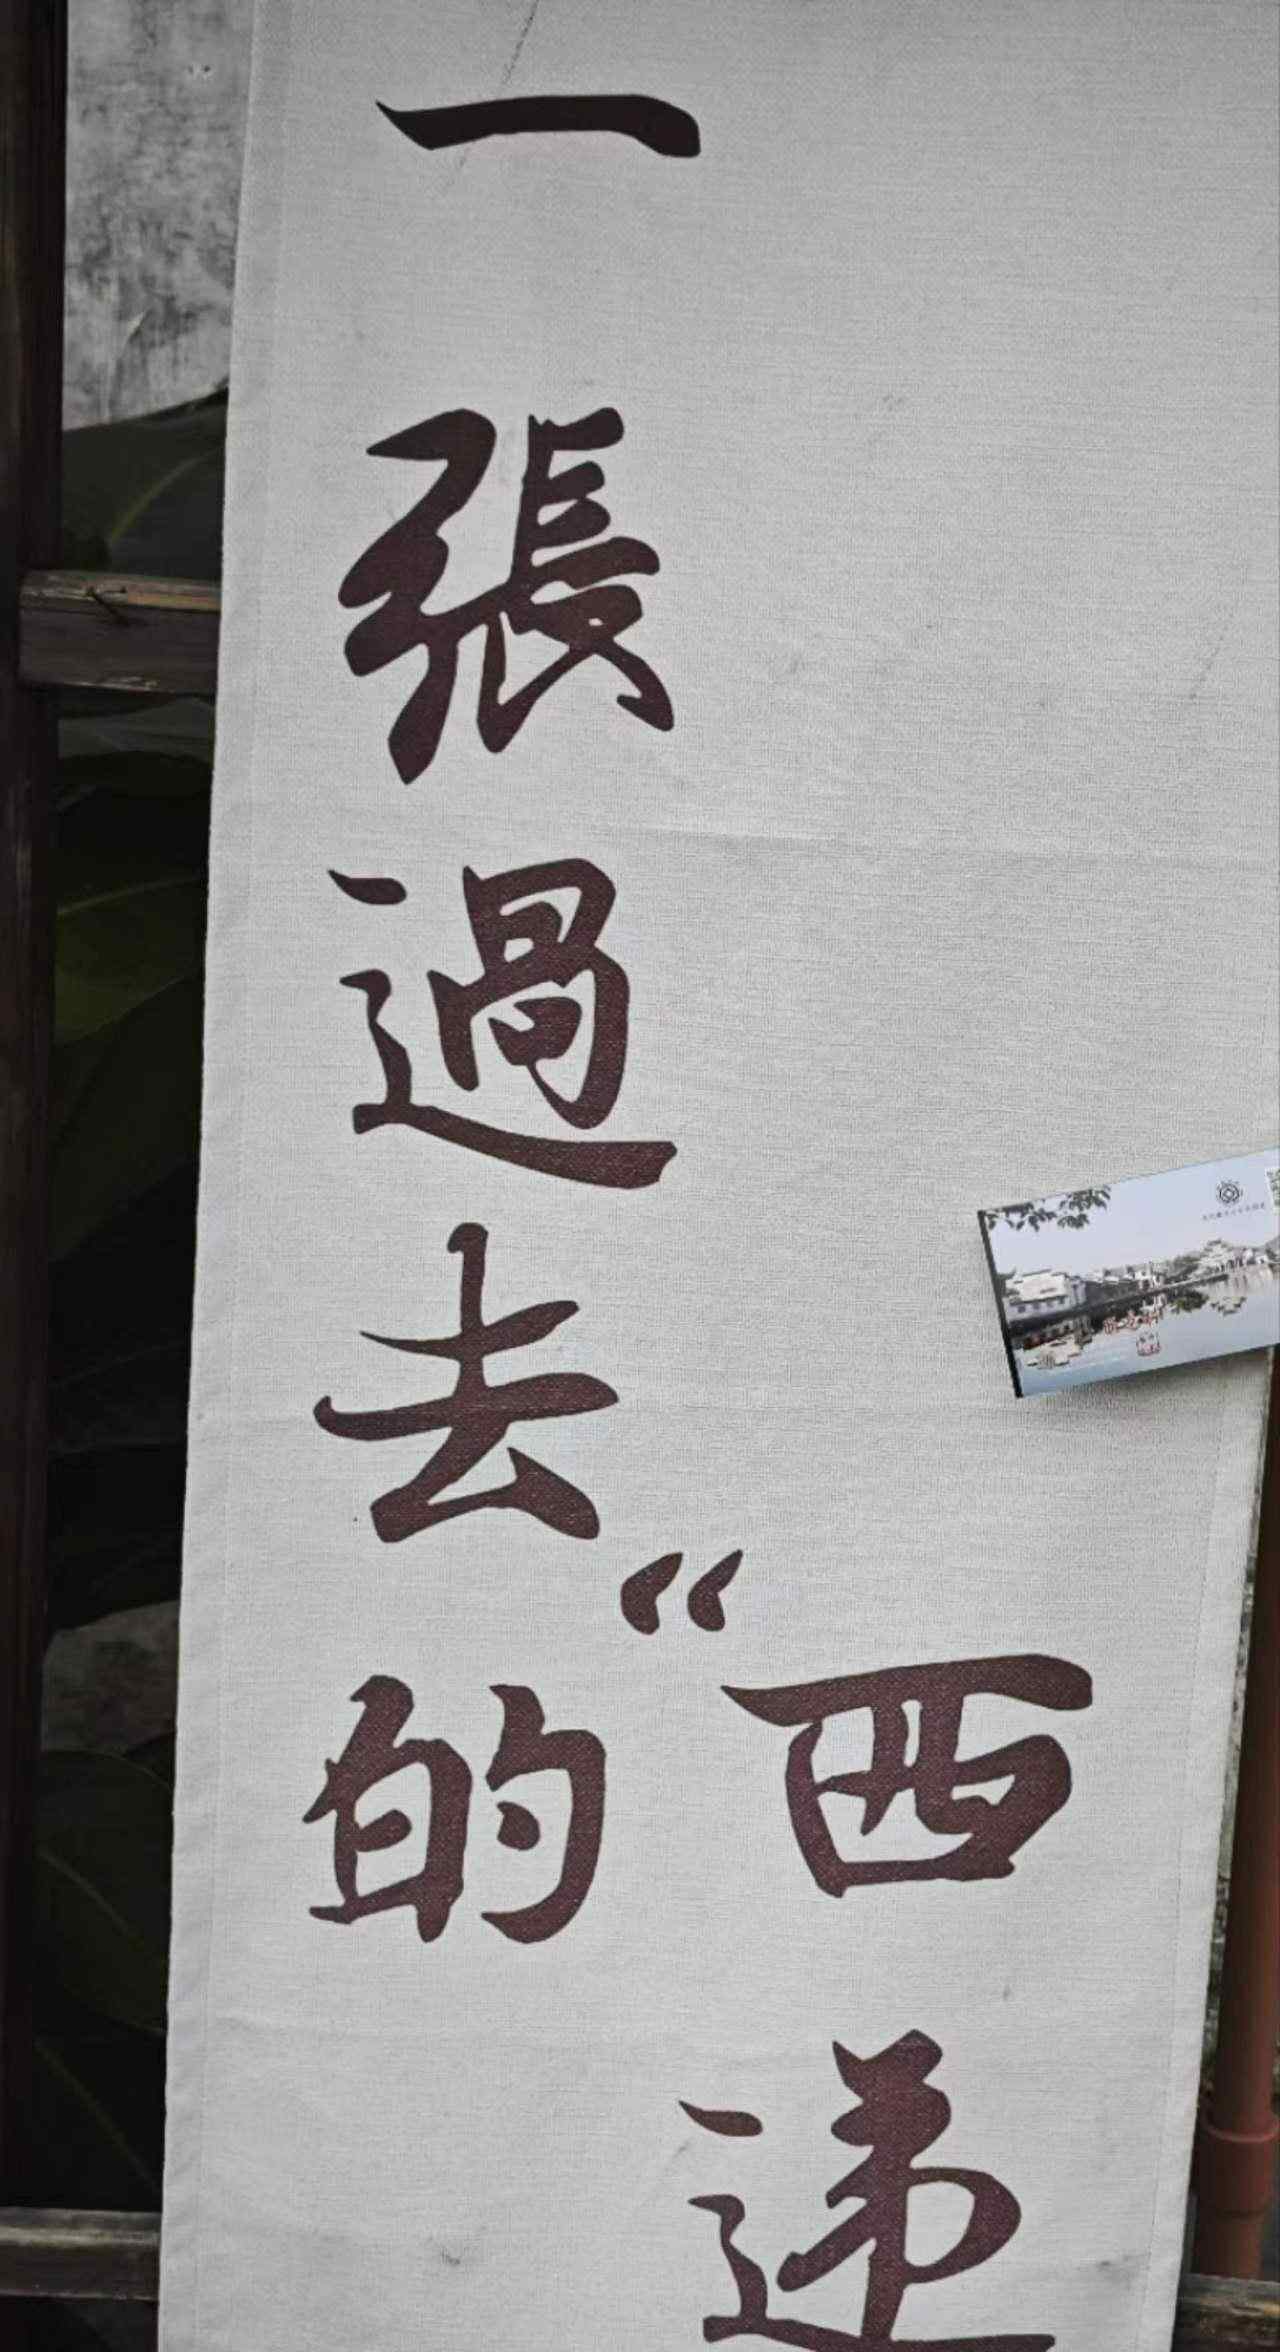 一張過去的
“西递